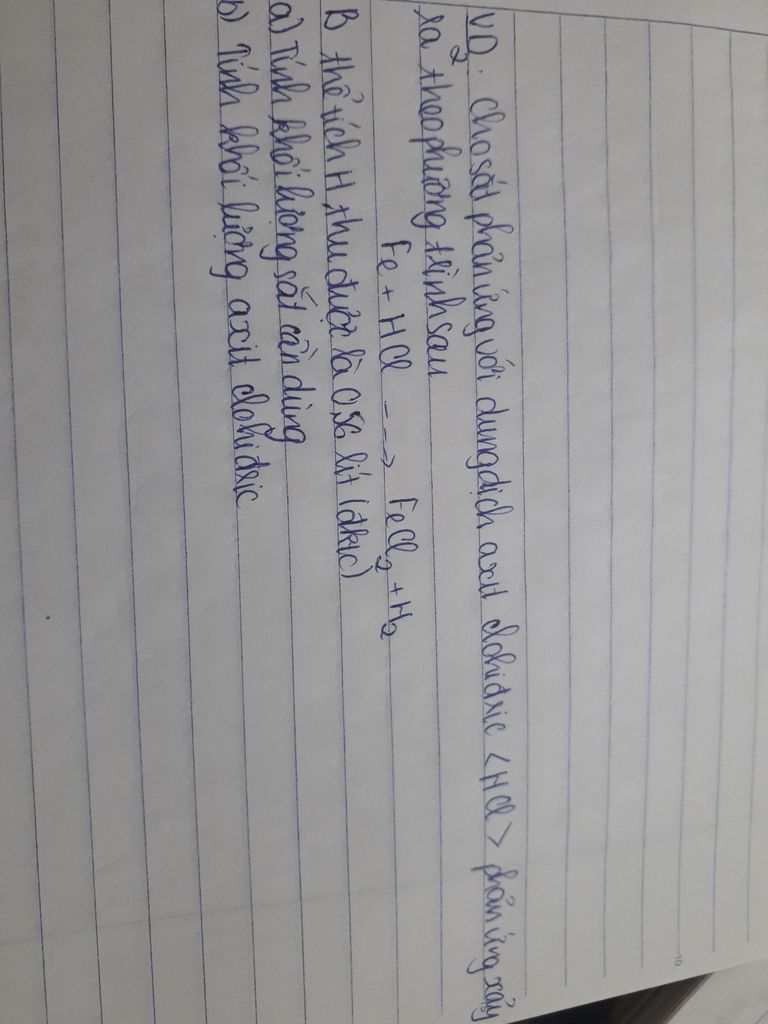 VD2. Cho sắt phản ứng với dung dịch axit clohiđric <HCl> phản ứng xảy
ra theo phương trình sau
Fe + HCl ---> FeCl2 + H2
B thể tích H thu được là 0,56 lít (đktc)
a) Tính khối lượng sắt cần dùng
b) Tính khối lượng axit clohiđric
10